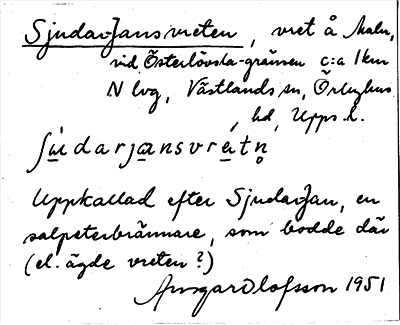 Sjudarjansvreten, vret å Malm,
vid Österlövsta-gränsen c:a 1 km
N lvg, Västlands sn, Örbyhus
hd, Upps. l.
ʃùdarjansvrètn̥
Uppkallad efter Sjudarjan, en
salpeterbrännare, som bodde där
(el. ägde vreten?)
Ansgar Olofsson 1951